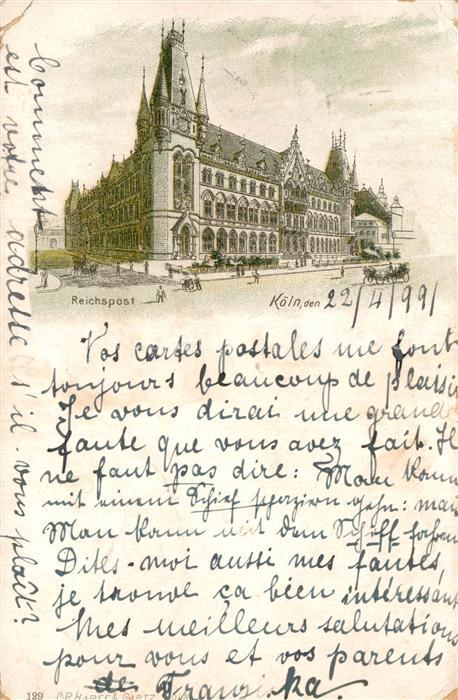 Reichspost
Köln, den 22/4/99/
Vos cartes postales me font
toujours beaucoup de plaisir
Je vous dirai une grande
faute que vous avez fait. Il
ne faut pas dire: Man kann
mit einem Schief spazieren gehn: mais
Man kann mit dem Schiff fahren
Dites-moi aussi mes fautes,
je trouve ça bien intéressant
Mes meilleurs salutations
pour vous et vos parents
de Franziska.
Comment
est votre adresse s'il-vous plaît?
189